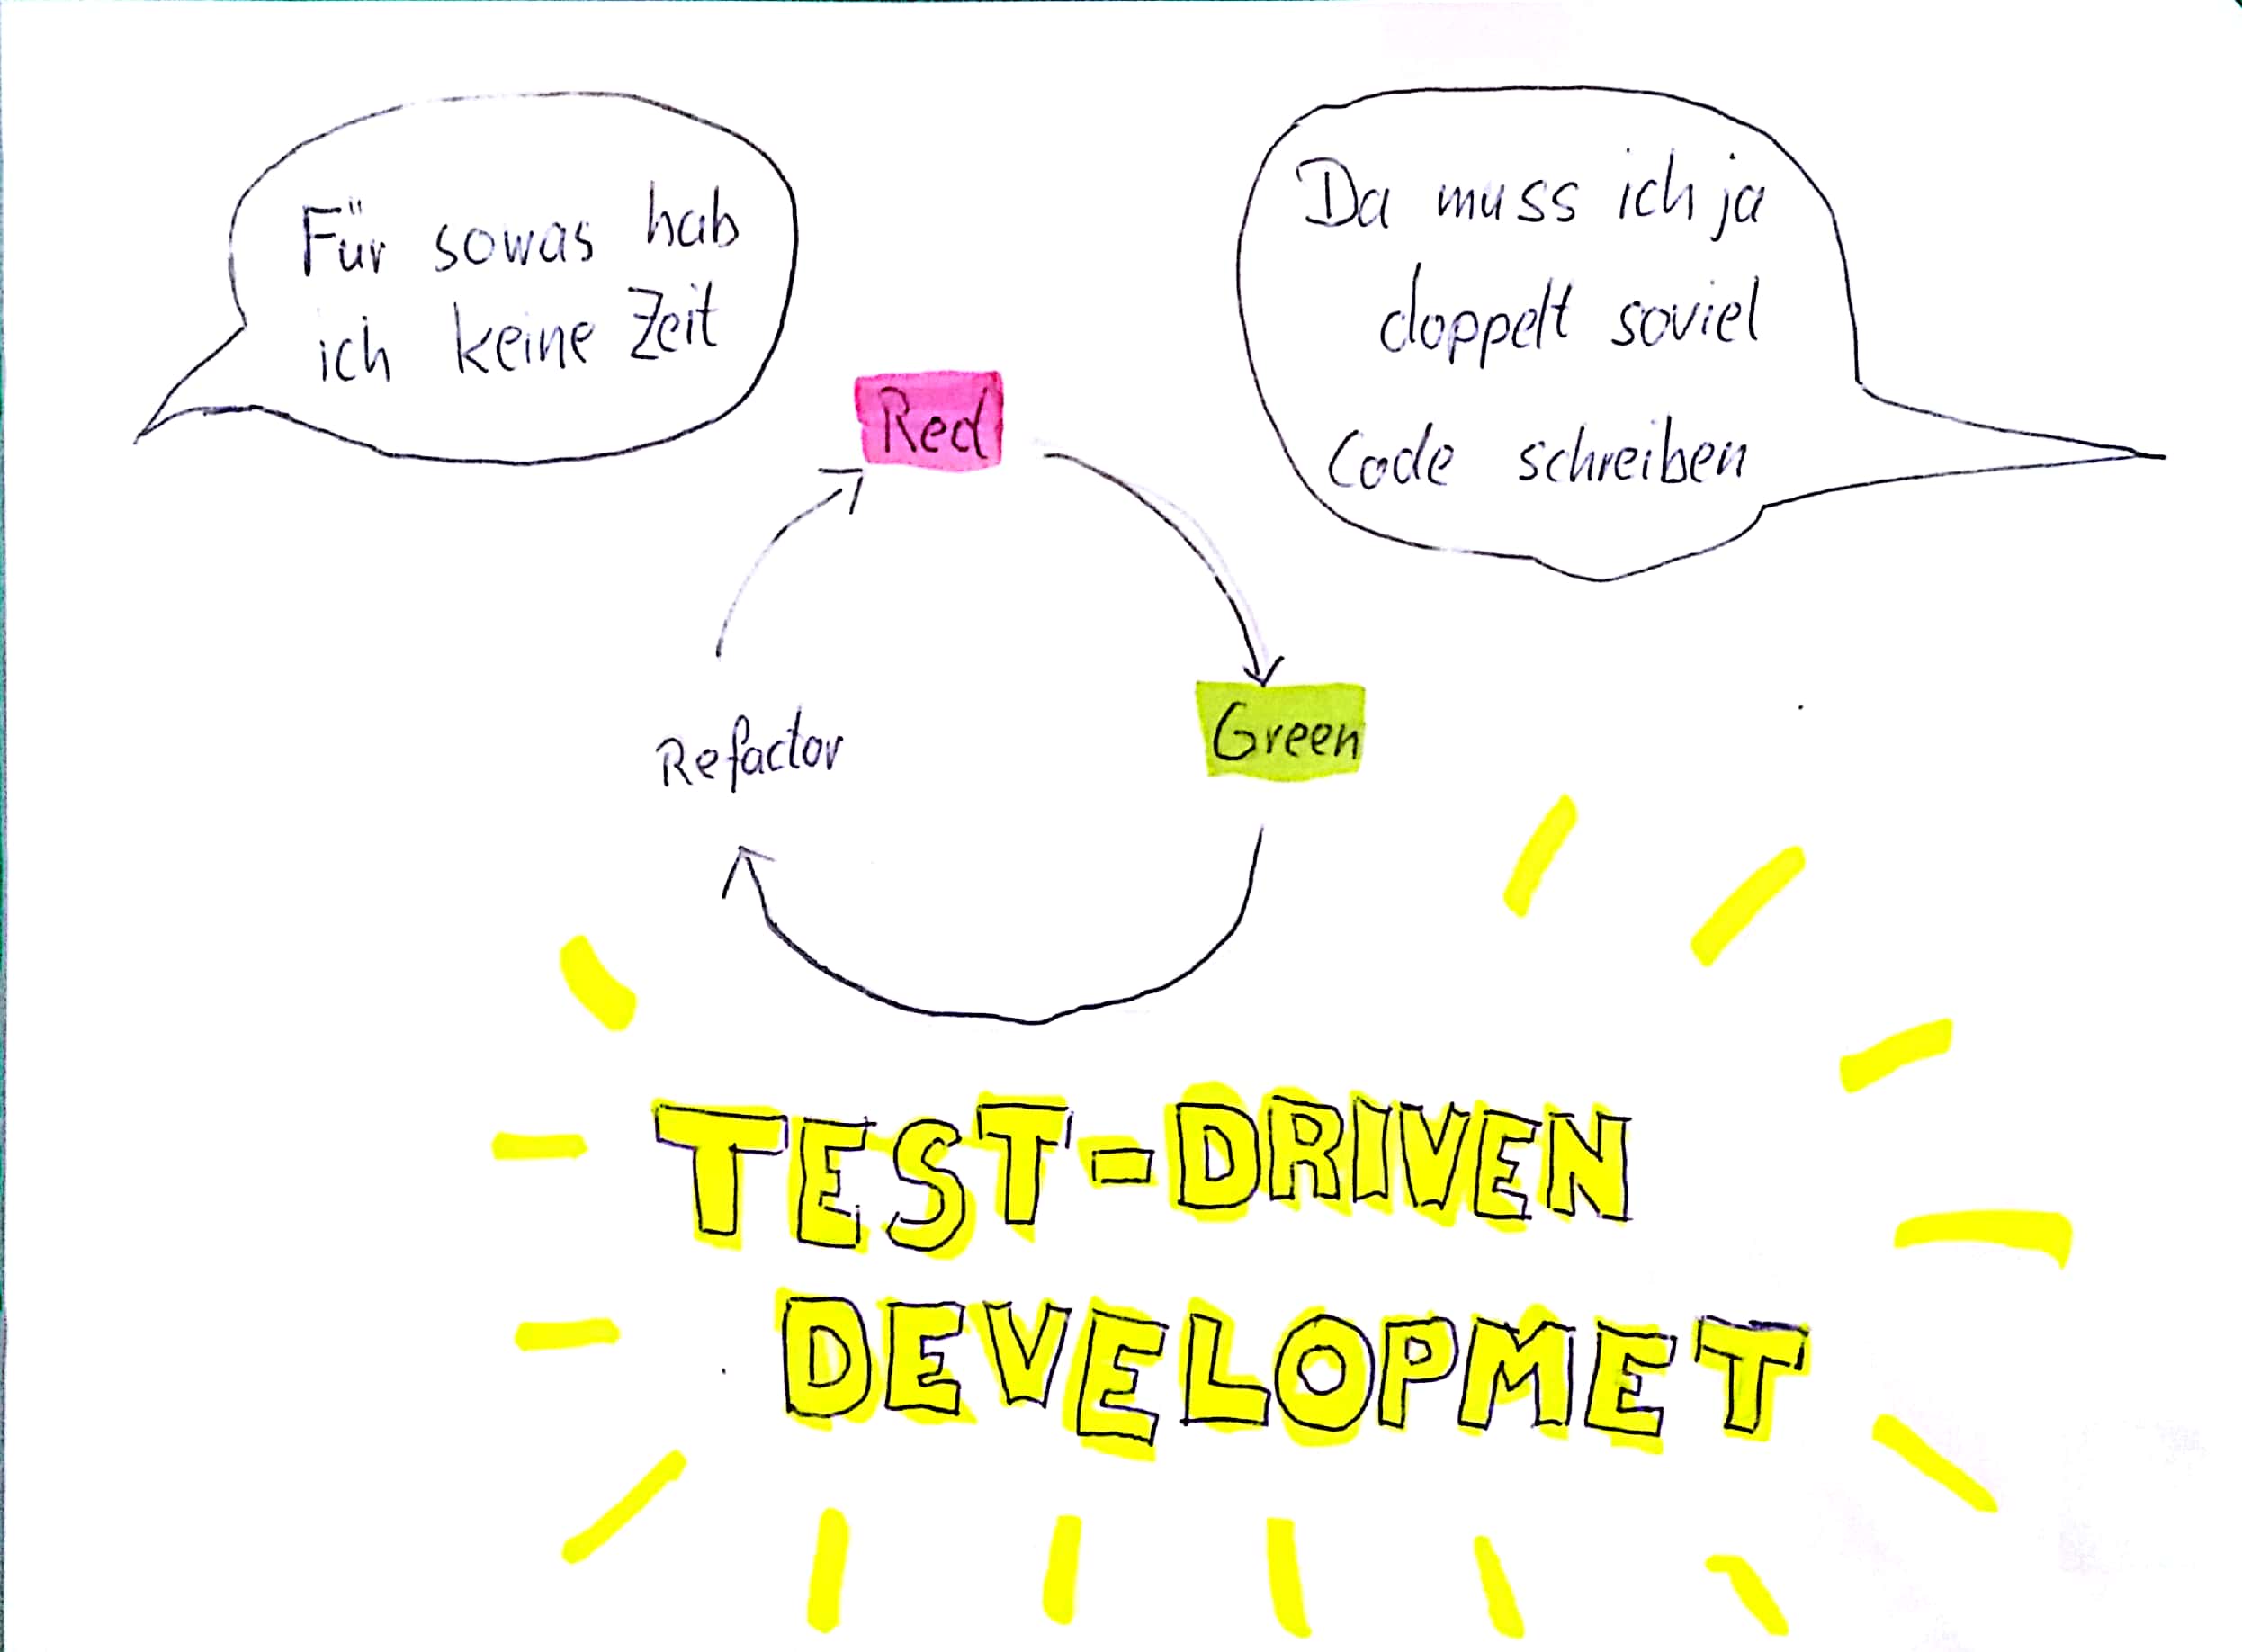 Für sowas hab
ich keine Zeit
Da muss ich ja
doppelt soviel
Code schreiben
Red
Green
Refactor
TEST-DRIVEN
DEVELOPMET